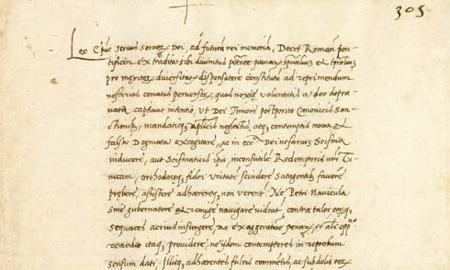 305
Leo Epus servus servoꝝ Dei, ad futurā rei memoriā, Decet Romanū pon-
tificem ex tradita sibi divinitus potate penarū spualiū et tpraliū
pro meritoꝝ diversitate dispensatorē constitutū ad reprimendum
nefarios conatus perversoꝝ, quos noxiȩ voluntatis a deo deprа-
vata captivat intentio, ut Dei Timore postposito Canonicis San-
ctionibꝫ, mandatisqꝫ aplicis neglectis, atqꝫ contemptis nova et
falsa Dogmata excogitare, ac in eccᵃ Dei nefarium Scisma
inducere, aut Scismaticis ipis, inconsutile Redemptoris nri Tu-
nicam, orthodoxeqꝫ fidei unitatē scindere satagentibꝫ favorē
prebere, assistere adherereqꝫ non verent Ne Petri Navicula
sine gubernatore et remige navigare videat, contra tales eorꝫqꝫ
sequaces acrius insurgere, ac exaggeratioe penarꝫ, et alio oppᵒ
remedio itaqꝫ providere, ne ijdem contemptores in reprobum
sensum dati illisqꝫ adherentes falsis commentis, ac subdolis eoꝝ